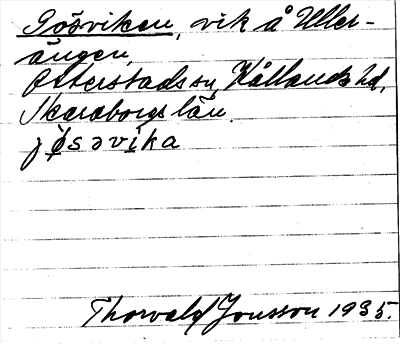 Gösviken, vik å Uller-
ängen,
Otterstads sn, Kållands hd,
Skaraborgs län.
jösəvika
Thorvald Jonsson 1935.